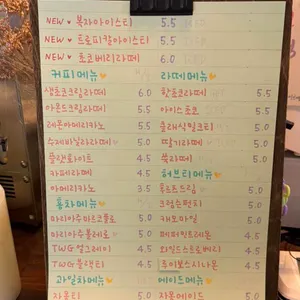 NEW ♥ 복자아이스티 5.5
NEW ♥ 트로피칼아이스티 5.5
NEW ♥ 초코베리라떼 6.0
커피메뉴
생초코크림라떼 6.0
아몬드크림라떼 5.5
레몬아메리카노 5.5
수제바닐라라떼 5.0
플랫화이트 4.5
카페라떼 4.5
아메리카노 3.5
홍차메뉴
마리아쥬마르코폴로 5.0
마리아쥬볼레로 5.0
TWG얼그레이 4.5
TWG블랙티 4.5
과일차메뉴
자몽티 5.0
라떼메뉴
핫초코라떼 5.5
아이스초코 5.5
클래식밀크티 5.0
딸기라떼 5.0
쑥라떼 5.0
허브티메뉴
5.0
크림슨펀치 5.0
캐모마일 5.0
페퍼민트레몬 4.5
와일드스트로베리 4.5
루이보스시나몬 4.5
에이드메뉴
자몽에이드 5.0